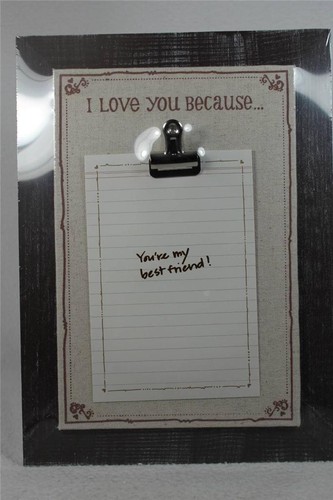 I LOVE YOU BECAUSE...
You're my
best friend!